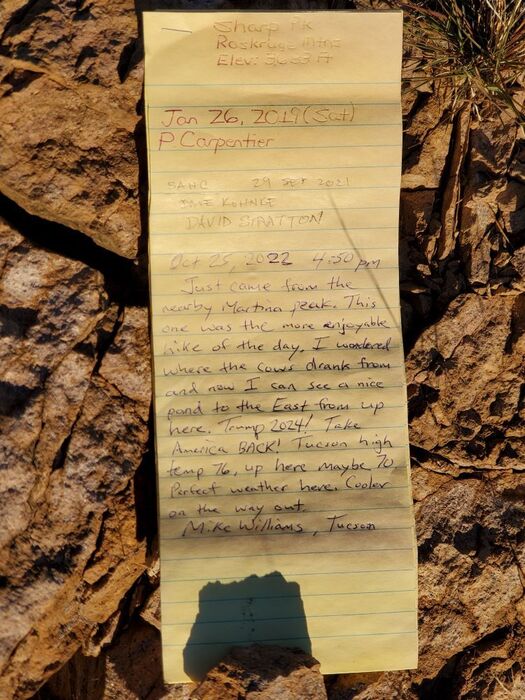 Sharp Pk
Roskruge Mtns
Elev:
Jan 26, 2019 (Sat)
P Carpentier
SAHC 29 SEP 2021
DAVID STRATTON
Oct 25, 2022 4:50 pm
Just came from the
nearby Martina peak. This
one was the more enjoyable
hike of the day. I wondered
where the cows drank from
and now I can see a nice
pond to the East from up
here. Trump 2024! Take
America BACK! Tucson high
temp 76, up here maybe 70.
Perfect weather here. Cooler
on the way out.
Mike Williams, Tucson